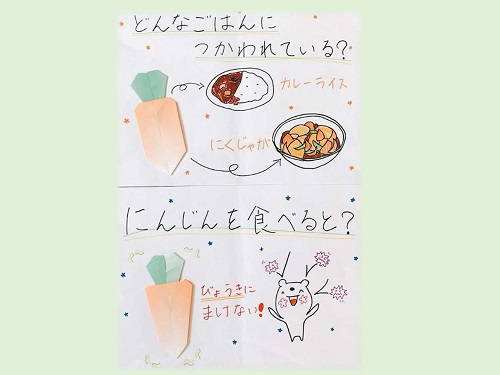 どんなごはんに
つかわれている?
カレーライス
にくじゃが
にんじんを食べると?
びょうきに
まけない!